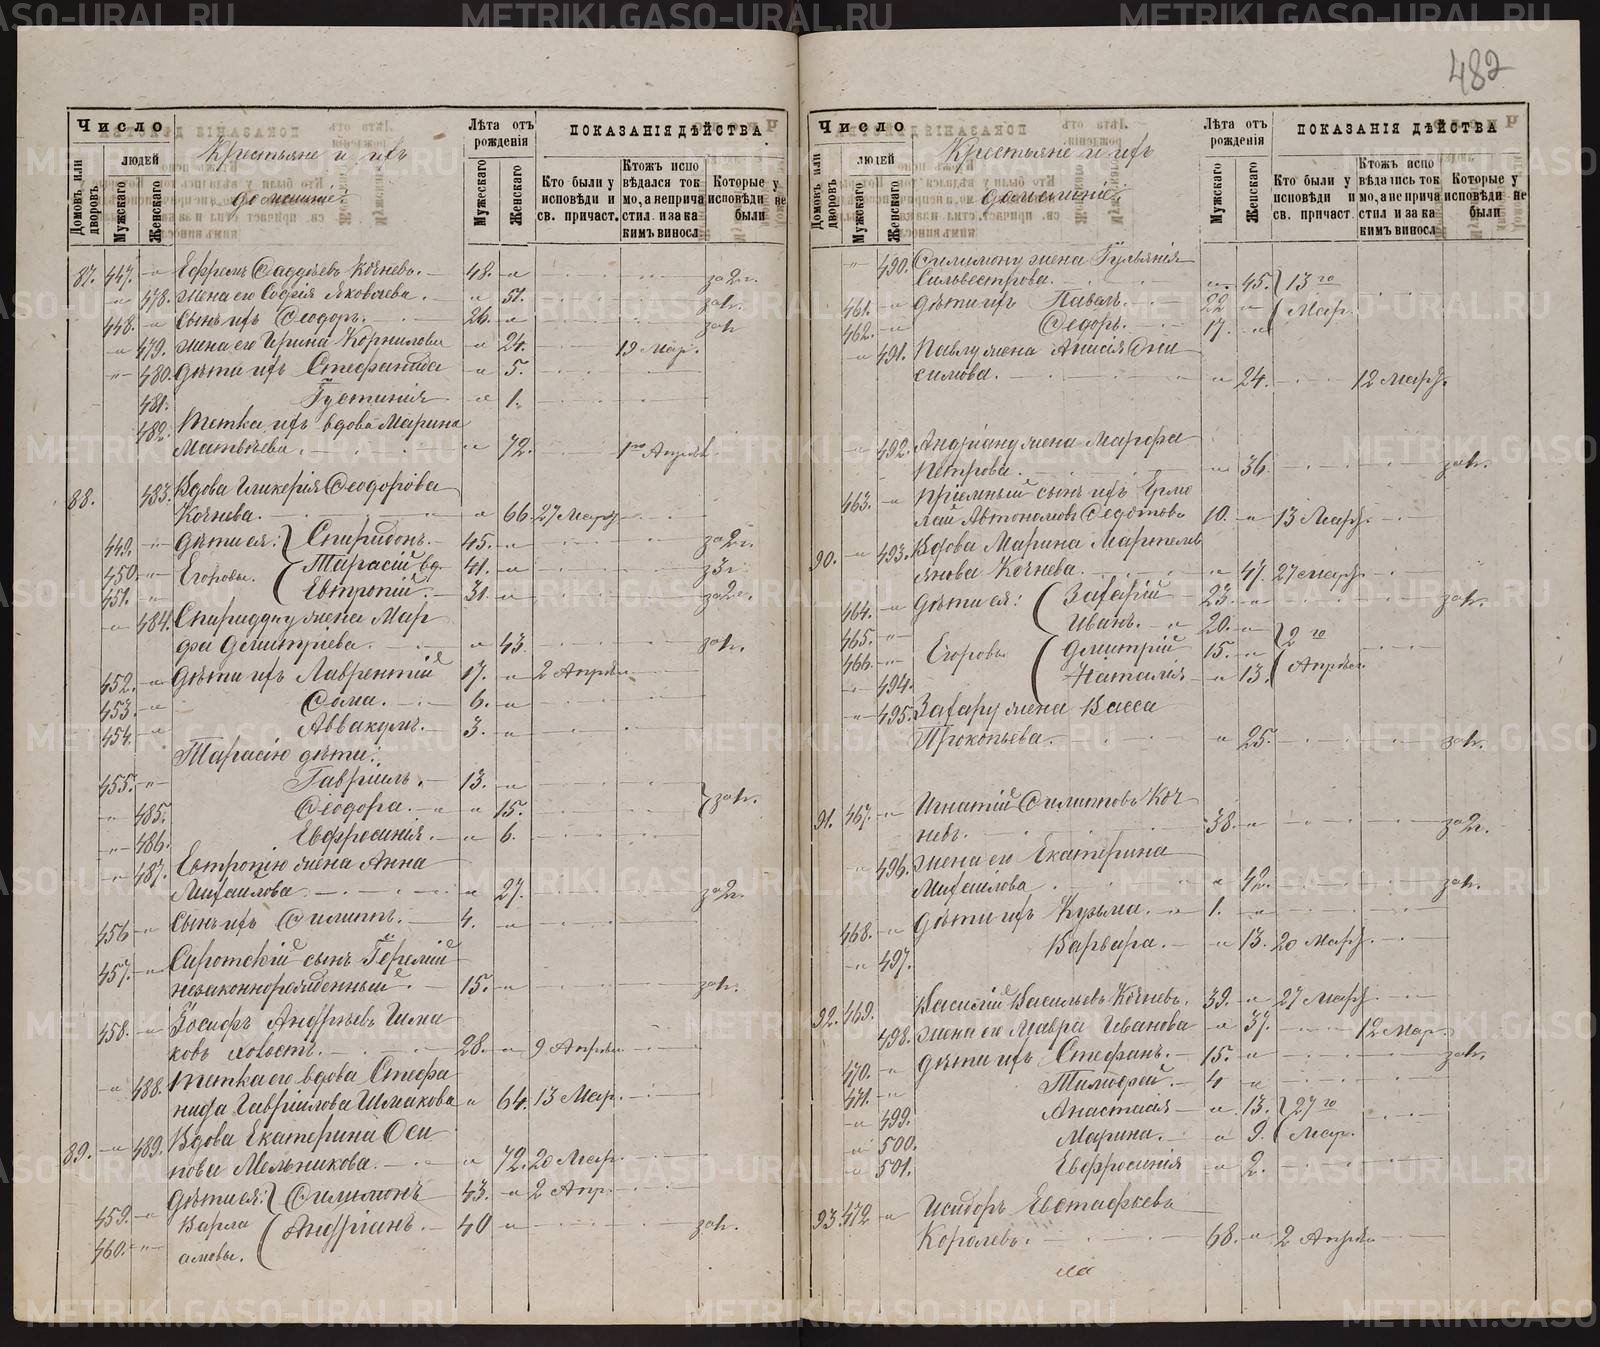 482
Число
Домовъ или дворовъ.
людей
Мужскаго
Женскаго
Крестьяне и ихъ
домашніе.
Лѣта отъ рожденія
Мужескаго
Женскаго
ПОКАЗАНІЯ ДѢЙСТВА
Кто были у исповѣди и св. причаст.
Ктожъ испо вѣдался ток мо, а не прича стил. и за ка кимъ виносл.
Которые у исповѣди не были
87. 447. Ефремъ Фаддѣевъ Кочневъ. 48. за 2 л.
478. жена его Софія Яковлева. 51. за л.
448. Сынъ ихъ Ѳеодоръ. 26. за л.
479. жена его Ирина Корнилова 24. 19 Мар.
480. Дѣти ихъ Стефанида 5.
481. Іустинія 1.
482. Тетка ихъ вдова Марина
Матвѣева. 72. 1го Апрѣл.
88. 483. Вдова Гликерія Ѳеодорова
Кочнева. 66. 27 Марта
449. Дѣти ея: Спиридонъ. 45. за 2 л.
450. Егоровы. Тарасій вд. 41. за 3 г.
451. Евтропій. 31. за 2 л.
484. Спиридону жена Мар
фа Димитріева. 43. за л.
452. Дѣти ихъ Лаврентій 17. 2 Апрѣля
453. Ѳома. 6.
454. Аввакумъ. 3.
Тарасію дѣти:
455. Гавріилъ. 13.
485. Ѳеодора. 15. за л.
486. Евфросинія. 6.
487. Евтропію жена Анна
Михаилова 27. за 2 л.
456 Сынъ ихъ Филиппъ. 4.
457. Сиротскій сынъ Іеремій
незаконнорожденный. 15. за л.
458. Іосифъ Андреевъ Шма
ковъ холостъ. 28. 9 Апрѣля
488. Тетка его вдова Стефа
нида Гавріилова Шмакова 64. 13 Мар.
89. 489. Вдова Екатерина Оси
пова Мельникова. 72. 20 Мар.
459. Дѣти ея: Филимонъ 43. 2 Апр.
460. Варла амовы. Андріанъ. 40 за л.
Число
Домовъ или дворовъ.
людей
Мужскаго
Женскаго
Крестьяне и ихъ
домашніе.
Лѣта отъ рожденія
Мужескаго
Женскаго
ПОКАЗАНІЯ ДѢЙСТВА
Кто были у исповѣди и св. причаст.
Ктожъ испо вѣдались ток мо, а не прича стил и за ка кимъ виносл.
Которые у исповѣди не были
490. Филимону жена Іульянія
Сильвестрова. 45. 13 го
461. Дѣти ихъ Павелъ. 22 Мар.
462. Ѳедоръ. 17.
491. Павлу жена Анисія Они
симова. 24. 12 Марта.
492. Андріану жена Марфа
Петрова. 36. за л.
463. Пріемный сынъ ихъ Ермо
лай Автономовъ Ѳедотовъ 10. 13 Марта
90. 493. Вдова Марина Мартемь
янова Кочнева. 47. 27 марта
464. Дѣти ея: Захарій 23. за л.
465. Иванъ. 20. 2 го
466. Егоровы Димитрій 15.
494. Наталія 13. Апрѣля.
495. Захару жена Васса
Прокопьева. 25. за л.
91. 467. Игнатій Филиповъ Коч
невъ. 38. за 2 л.
496. жена его Екатерина
Михаилова 42. за л.
468. Дѣти ихъ Кузьма. 1.
497. Варвара. 13. 20 Марта.
92. 469. Василій Васильевъ Кочневъ. 39. 27 Марта
498. жена его Мавра Иванова 37. 12 Мар.
470. Дѣти ихъ Стефанъ. 15. за л.
471. Тимофей. 4
499. Анастасія 13. 27 го
500. Марина. 9. Мар.
501. Евфросинія 2.
93. 472 Исидоръ Евстафьевъ
Королевъ. 68. 2 Апрѣля
METRIKI.GASO-URAL.RU